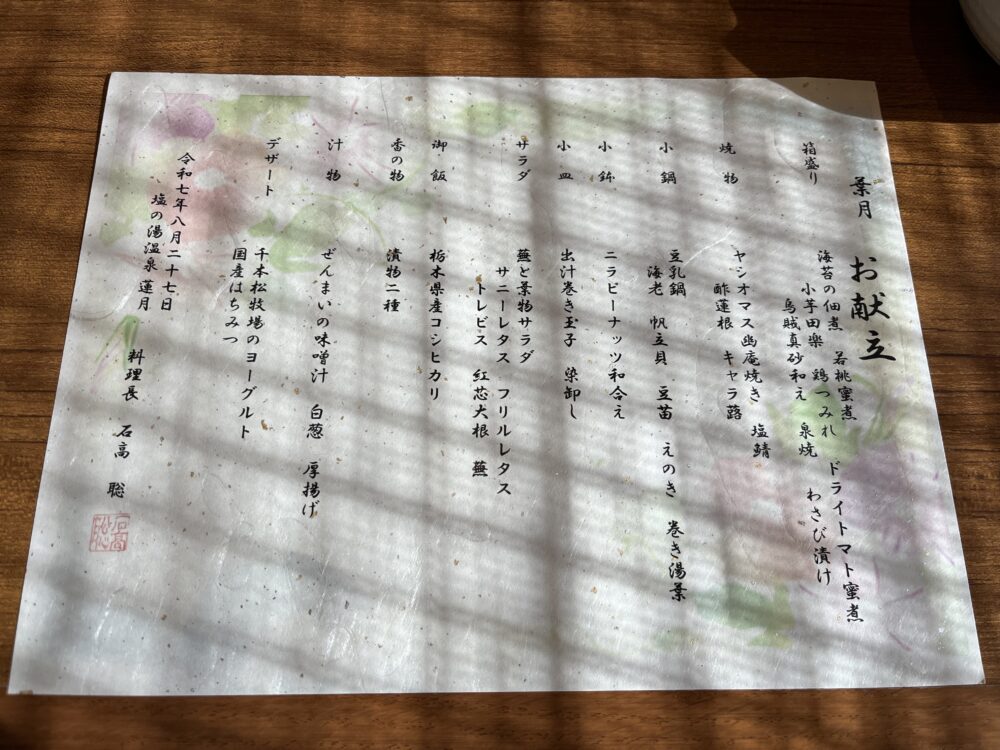 葉月 お献立
箱盛り 海苔の佃煮 若桃蜜煮 ドライトマト蜜煮
小芋田楽 鶏つみれ わさび漬け
烏賊真砂和え 泉焼
焼物 ヤシオマス幽庵焼き 塩鯖
酢蓮根 キャラ蕗
小鍋 豆乳鍋
海老 帆立貝 豆苗 えのき 巻き湯葉
小鉢 ニラピーナッツ和合え
小皿 出汁巻き玉子 染卸し
サラダ 蕪と葉物サラダ
サニーレタス フリルレタス
トレビス 紅芯大根 蕪
御飯 栃木県産コシヒカリ
香の物 漬物二種
汁物 ぜんまいの味噌汁 白葱 厚揚げ
デザート 千本松牧場のヨーグルト
国産はちみつ
令和七年八月二十七日
塩の湯温泉 蓮月
料理長 石高 聡